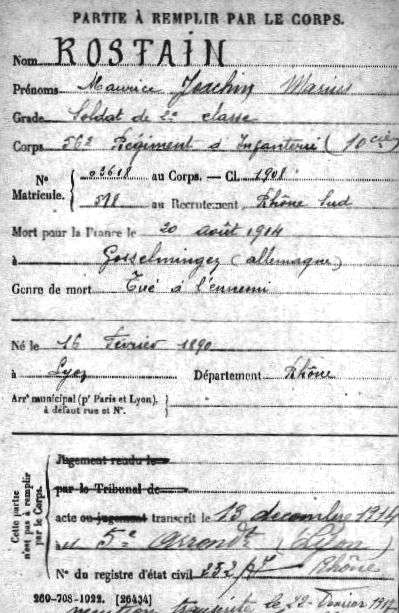 PARTIE À REMPLIR PAR LE CORPS.
Nom ROSTAIN
Prénoms Maurice Joachin Marius
Grade Soldat de 2e classe
Corps 56e Régiment d'Infanterie (10 Cie)
N° Matricule. { 02618 au Corps. — Cl. 1908
518 au Recrutement Rhône Sud
Mort pour la France le 20 août 1914
à Gosselmingez (allemagne)
Genre de mort Tué à l'ennemi
Né le 16 Février 1890
à Lyon Département Rhône
Arrt municipal (pr Paris et Lyon), à défaut rue et N°. }
Cette partie n'est pas à remplir par le Corps.
Jugement rendu le
par le Tribunal de
acte ou jugement transcrit le 13 décembre 1914
5e arrondt (Lyon)
N° du registre d'état civil 232 Rhône
269-708-1922. [26434]